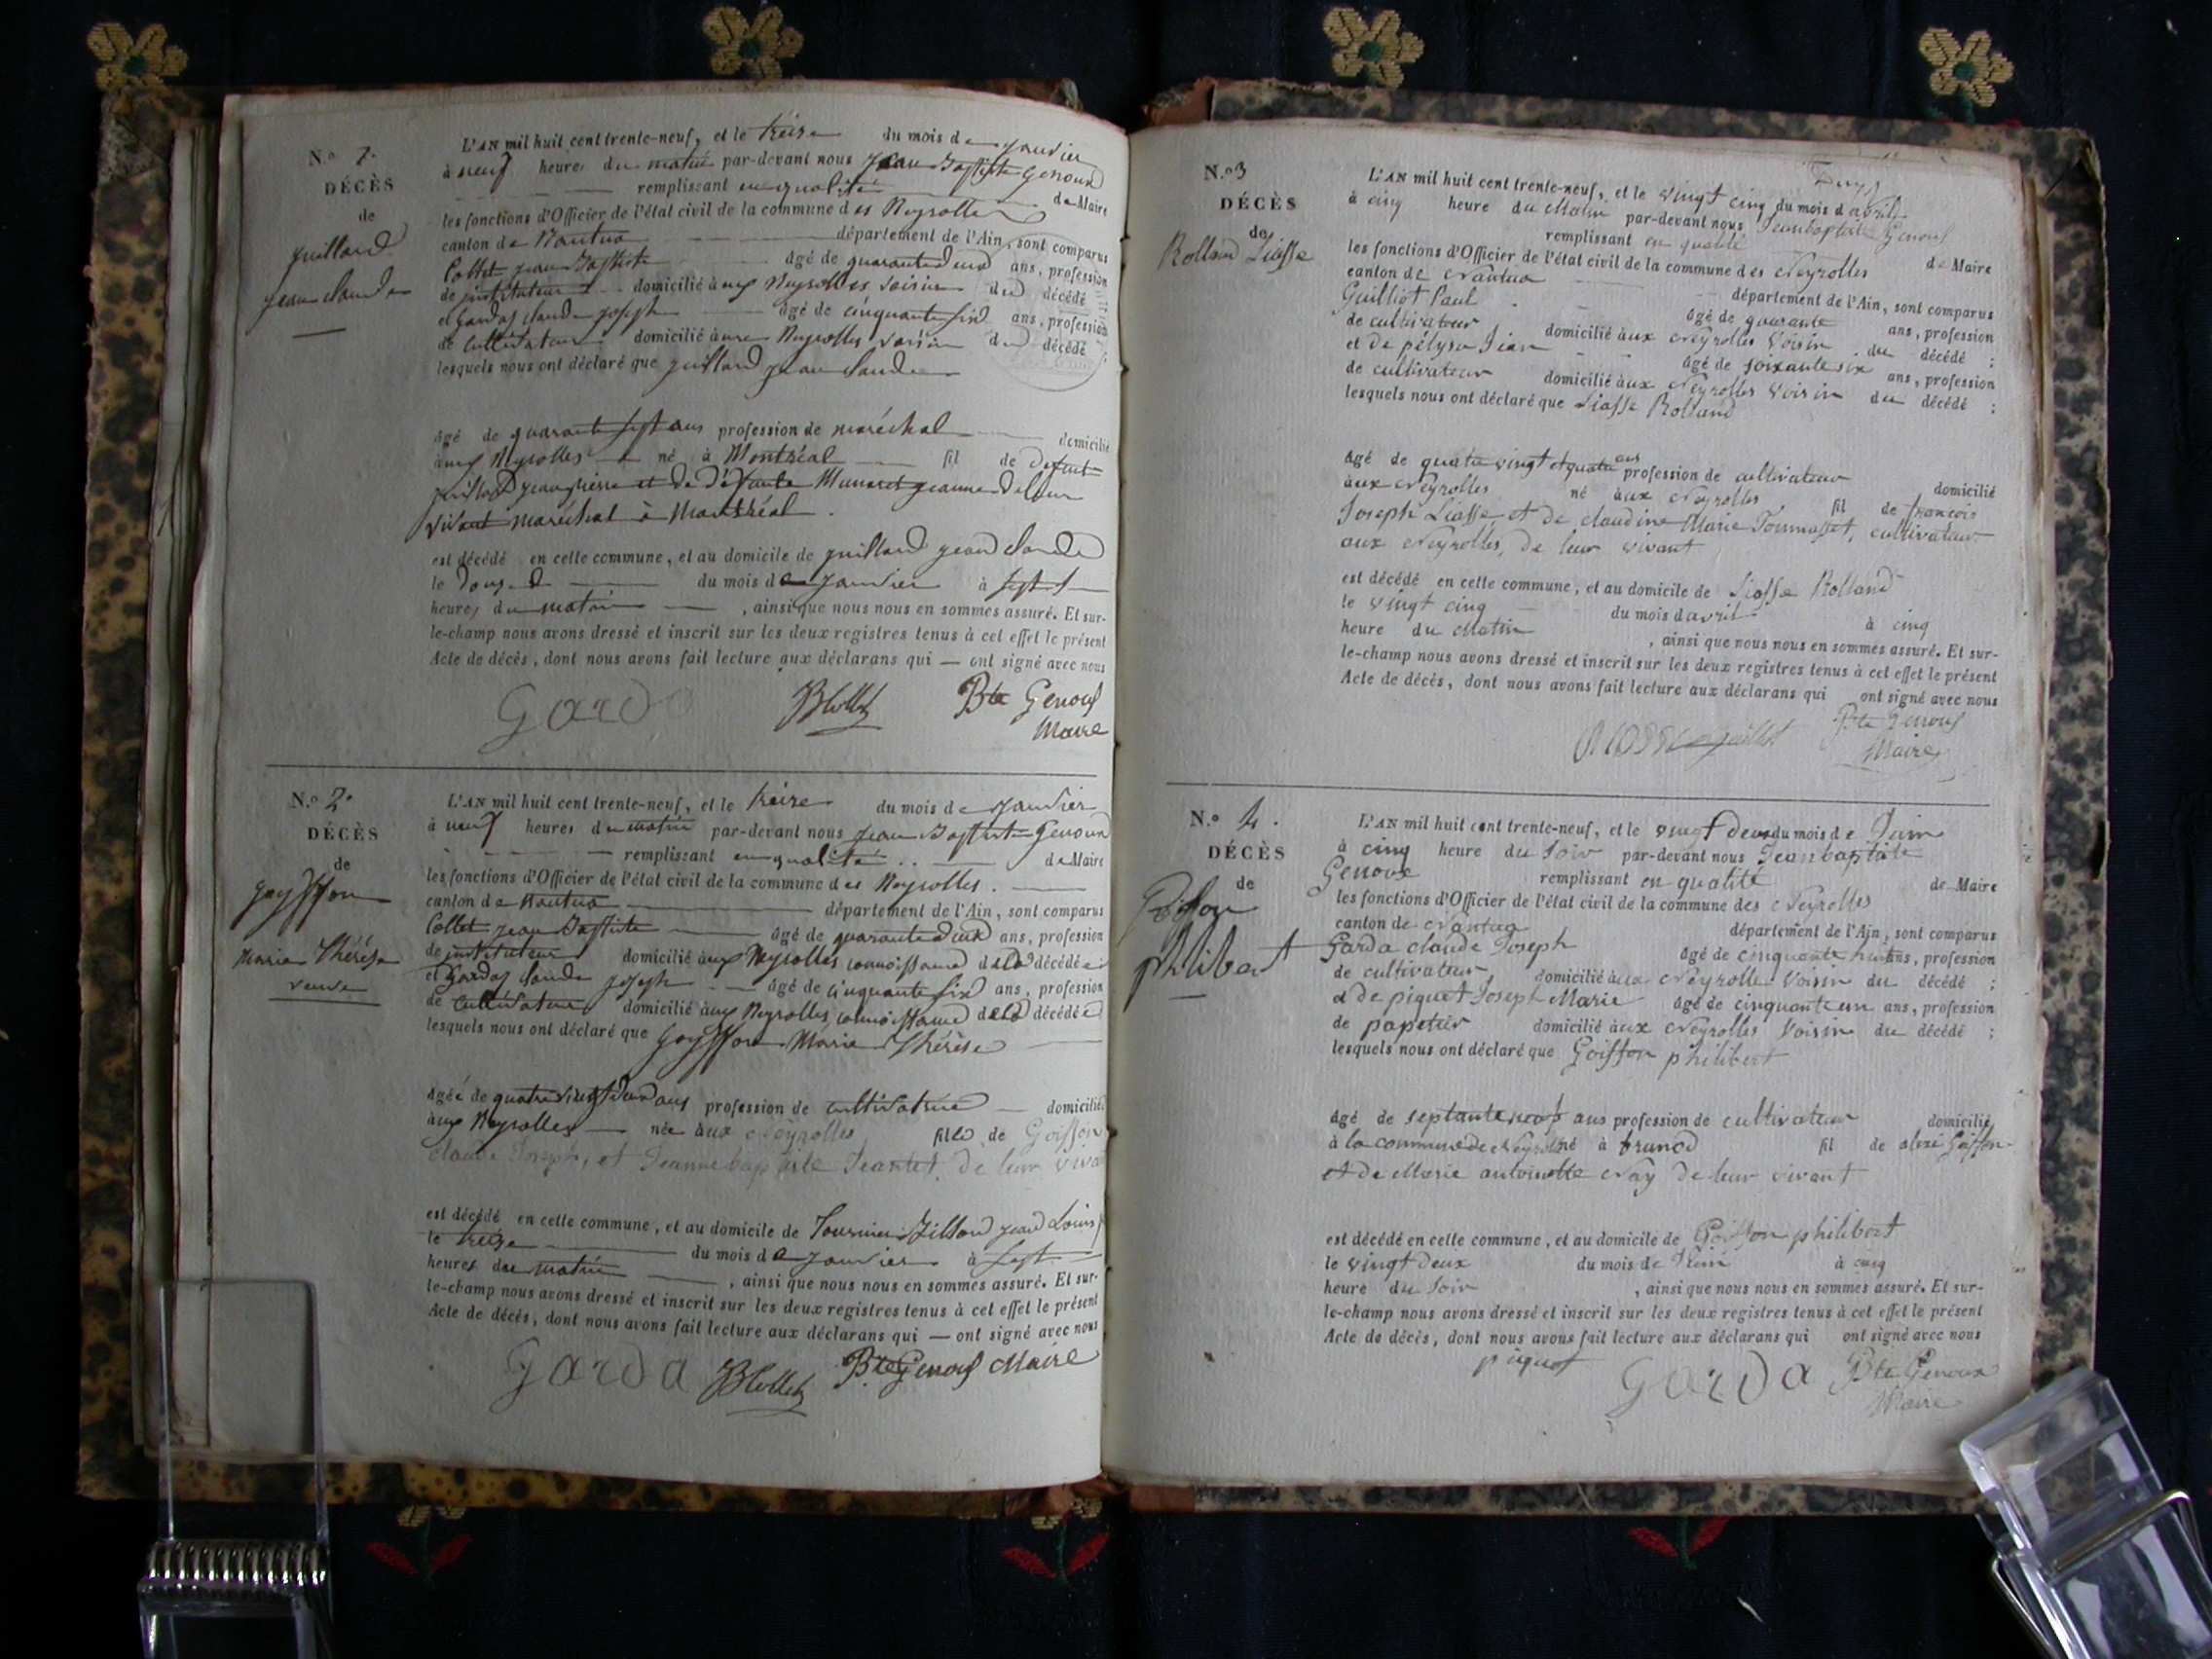 N.o 1.
DÉCÈS
de
juillard
jean claude
L'AN mil huit cent trente-neuf, et le treize du mois de janvier
à neuf heures du matin par-devant nous Jean Baptiste Genoux
remplissant en qualité de Maire
les fonctions d'Officier de l'état civil de la commune des Neyrolles
canton de Nantua département de l'Ain, sont comparus
Collet jean Baptiste âgé de quarante deux ans, profession
de instituteur domicilié aux Neyrolles voisin du décédé ;
et Gardas claude joseph âgé de cinquante six ans, profession
de cultivateur domicilié aux Neyrolles voisin du décédé ;
lesquels nous ont déclaré que juillard jean claude
âgé de quarante sept ans profession de maréchal domicilié
aux Neyrolles né à Montréal fil de defunt
juillard jean pierre et de défunte Munaret jeanne de leur
vivant maréchal à Montréal.
est décédé en cette commune, et au domicile de juillard jean claude
le douze du mois de janvier à sept
heures du matin , ainsi que nous nous en sommes assuré. Et sur-
le-champ nous avons dressé et inscrit sur les deux registres tenus à cet effet le présent
Acte de décès, dont nous avons fait lecture aux déclarans qui — ont signé avec nous
Garda JBCollet Bte Genoux
Maire
N.o 2.
DÉCÈS
de
goyffon
marie thérèse
veuve
L'AN mil huit cent trente-neuf, et le treize du mois de janvier
à neuf heures du matin par-devant nous jean Baptiste Genoux
remplissant en qualité de Maire
les fonctions d'Officier de l'état civil de la commune des Neyrolles.
canton de Nantua département de l'Ain, sont comparus
Collet jean Baptiste âgé de quarante deux ans, profession
de instituteur domicilié aux Neyrolles connoissance de la décédée ;
et Gardas claude joseph âgé de cinquante six ans, profession
de cultivateur domicilié aux Neyrolles connoissance de la décédée
lesquels nous ont déclaré que goyffon Marie thérèse
âgée de quatre vingt deux ans profession de cultivatrice domicilié
aux Neyrolles née aux Neyrolles fille de Goiffon
claude Joseph, et Jeanne baptiste Jeantet, de leur vivant
est décédé en cette commune, et au domicile de Tournier Billond jean Louis
le treize du mois de janvier à sept
heures du matin , ainsi que nous nous en sommes assuré. Et sur-
le-champ nous avons dressé et inscrit sur les deux registres tenus à cet effet le présent
Acte de décès, dont nous avons fait lecture aux déclarans qui — ont signé avec nous
Garda JBCollet Bte Genoux Maire
N.o 3
DÉCÈS
de
Rolland Liasse
L'AN mil huit cent trente-neuf, et le vingt cinq du mois d avril
à cinq heure du Matin par-devant nous Jeanbaptiste Genoux
remplissant en qualité de Maire
les fonctions d'Officier de l'état civil de la commune des Neyrolles
canton de Nantua département de l'Ain, sont comparus
Guilliot Paul âgé de quarante ans, profession
de cultivateur domicilié aux Neyrolles Voisin du décédé ;
et de pélysu Jean âgé de soixante six ans, profession
de cultivateur domicilié aux Neyrolles Voisin du décédé ;
lesquels nous ont déclaré que Liasse Rolland
âgé de quatre vingt et quatre ans profession de cultivateur domicilié
aux Neyrolles né aux Neyrolles fil de francois
Joseph Liasse et de claudine Marie Tournasset, cultivateur
aux Neyrolles, de leur vivant
est décédé en cette commune, et au domicile de Liasse Rolland
le vingt cinq du mois d avril à cinq
heure du Matin , ainsi que nous nous en sommes assuré. Et sur-
le-champ nous avons dressé et inscrit sur les deux registres tenus à cet effet le présent
Acte de décès, dont nous avons fait lecture aux déclarans qui ont signé avec nous
Bte Genoux
Maire
N.o 4.
DÉCÈS
de
Goiffon
philibert
L'AN mil huit cent trente-neuf, et le vingt deux du mois de Juin
à cinq heure du Soir par-devant nous Jeanbaptiste
Genoux remplissant en qualité de Maire
les fonctions d'Officier de l'état civil de la commune des Neyrolles
canton de Nantua département de l'Ain, sont comparus
Garda claude Joseph âgé de cinquante huit ans, profession
de cultivateur domicilié aux Neyrolle Voisin du décédé ;
et de piquet Joseph Marie âgé de cinquante un ans, profession
de papetier domicilié aux Neyrolles Voisin du décédé ;
lesquels nous ont déclaré que Goiffon philibert
âgé de septante neuf ans profession de cultivateur domicilié
à la commune de Neyrolle né à brunod fil de alexi Goiffon
et de Marie antoinette Nay de leur vivant
est décédé en cette commune, et au domicile de Goiffon philibert
le vingt Deux du mois de Juin à cinq
heure du Soir , ainsi que nous nous en sommes assuré. Et sur-
le-champ nous avons dressé et inscrit sur les deux registres tenus à cet effet le présent
Acte de décès, dont nous avons fait lecture aux déclarans qui ont signé avec nous
piquet Garda Bte Genoux
Maire